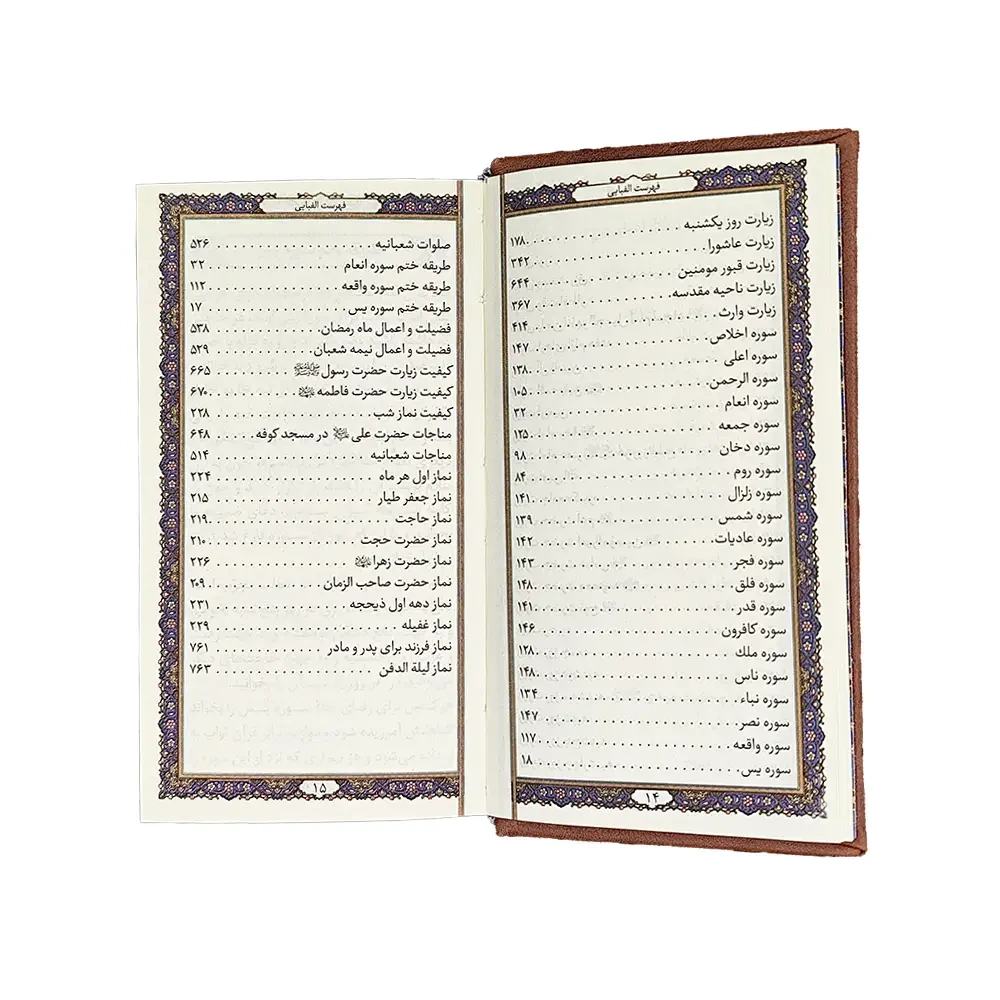 فهرست الفبایی
زیارت روز یکشنبه ۱۷۸
زیارت عاشورا ۳۴۲
زیارت قبور مومنین ۶۴۴
زیارت ناحیه مقدسه ۳۶۷
زیارت وارث ۴۱۴
سوره اخلاص ۱۴۷
سوره اعلی ۱۳۸
سوره الرحمن ۱۰۵
سوره انعام ۳۲
سوره جمعه ۱۲۵
سوره دخان ۹۸
سوره روم ۸۴
سوره زلزال ۱۴۱
سوره شمس ۱۳۹
سوره عادیات ۱۴۲
سوره فجر ۱۴۳
سوره فلق ۱۴۸
سوره قدر ۱۴۱
سوره کافرون ۱۴۶
سوره ملك ۱۲۸
سوره ناس ۱۴۸
سوره نباء ۱۳۴
سوره نصر ۱۴۷
سوره واقعه ۱۱۷
سوره یس ۱۸
۱۴
فهرست الفبایی
صلوات شعبانیه ۵۲۶
طریقه ختم سوره انعام ۳۲
طریقه ختم سوره واقعه ۱۱۲
طریقه ختم سوره یس ۱۷
فضیلت و اعمال ماه رمضان ۵۳۸
فضیلت و اعمال نیمه شعبان ۵۲۹
کیفیت زیارت حضرت رسول ﷺ ۶۶۵
کیفیت زیارت حضرت فاطمه ۶۷۰
کیفیت نماز شب ۲۲۸
مناجات حضرت علی در مسجد کوفه ۶۴۸
مناجات شعبانیه ۵۱۴
نماز اول هر ماه ۲۲۴
نماز جعفر طیار ۲۱۵
نماز حاجت ۲۱۹
نماز حضرت حجت ۲۱۰
نماز حضرت زهرا ۲۲۶
نماز حضرت صاحب الزمان ۲۰۹
نماز دهه اول ذیحجه ۲۳۱
نماز غفیله ۲۲۹
نماز فرزند برای پدر و مادر ۷۶۱
نماز لیلة الدفن ۷۶۳
۱۵